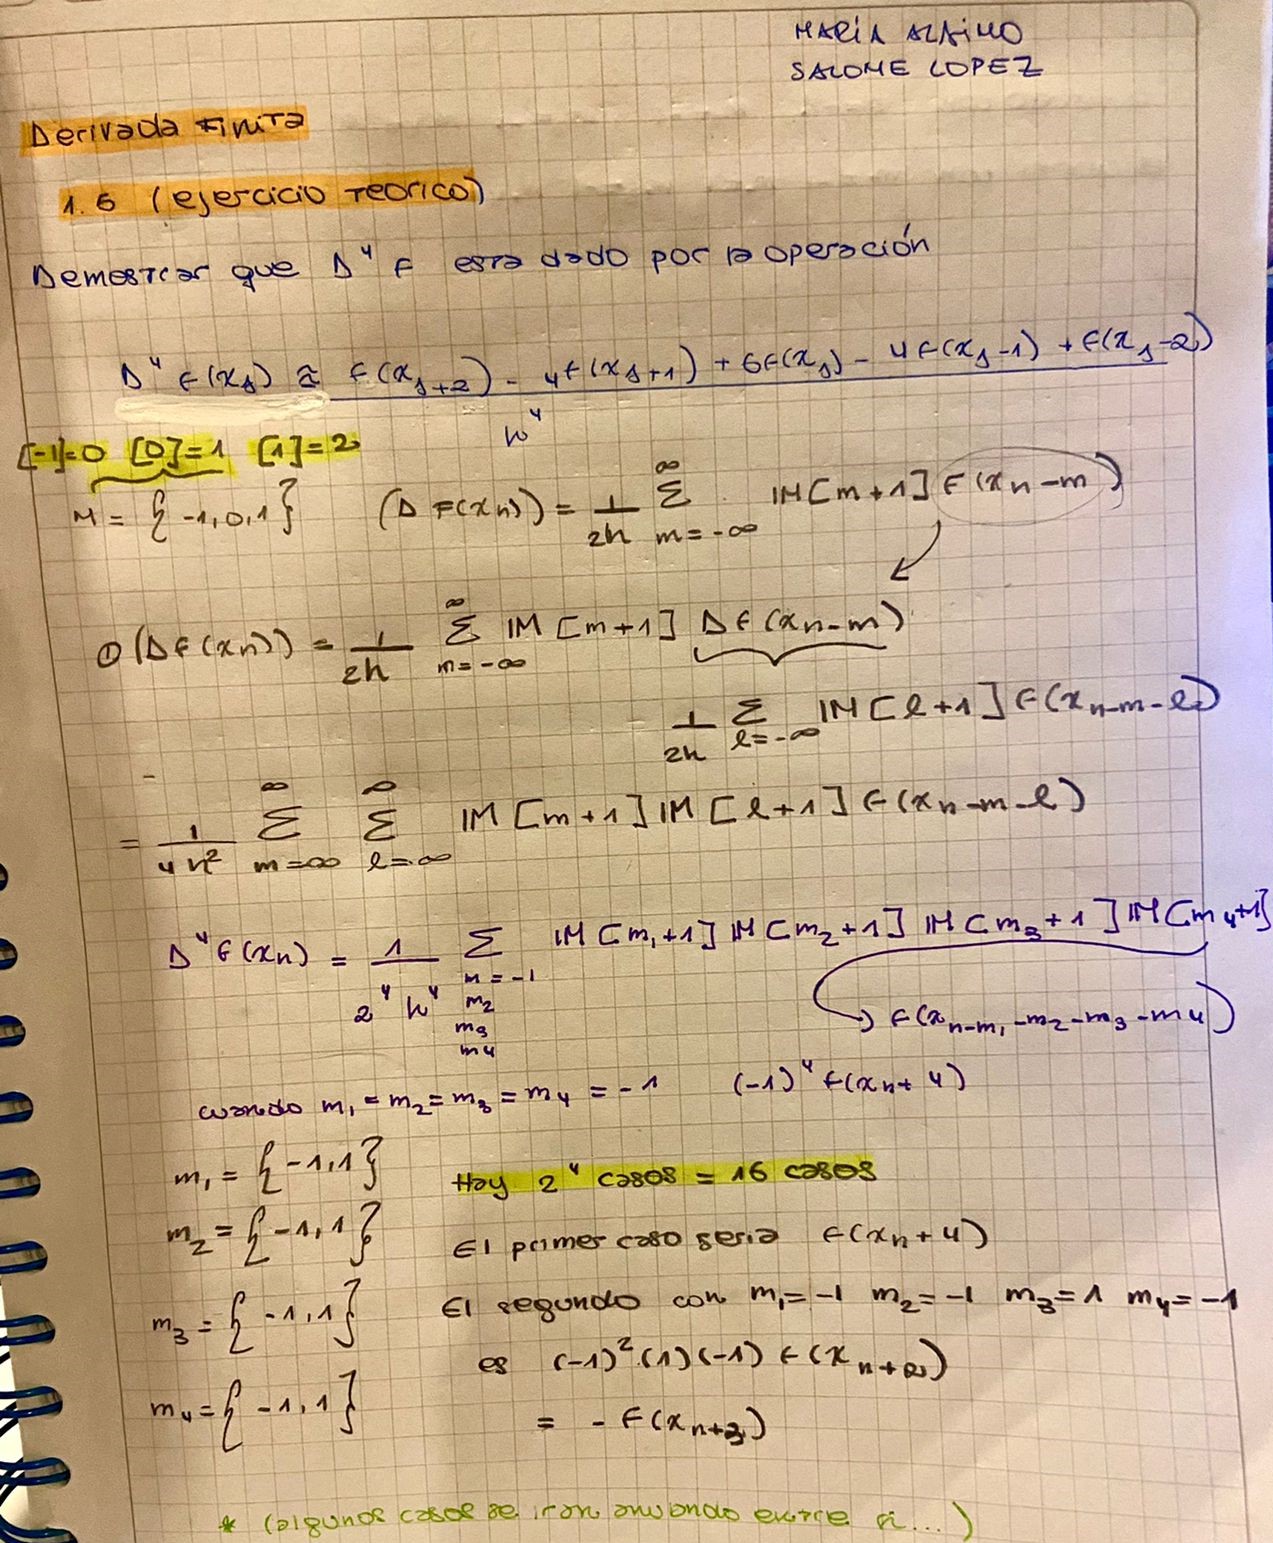 MARÍA ALBINO
SALOME LOPEZ
Derivada Finita
1.6 (ejercicio teorico)
Demostrar que Δ⁴ F esta dado por la operación
Δ⁴ F(x_j) ≈ F(x_{j+2}) - 4F(x_{j+1}) + 6F(x_j) - 4F(x_j-1) + F(x_j-2)
h⁴
[-1]=0 [0]=1 [1]=2
M = {-1,0,1} (Δ F(x_n)) = 1/2h Σ_{m=-∞}^{∞} IM[m+1] F(x_n-m)
① (ΔF(x_n)) = 1/2h Σ_{m=-∞}^{∞} IM[m+1] ΔF(x_{n-m})
1/2h Σ_{l=-∞} IM[l+1] F(x_{n-m-l})
= 1/4h² Σ_{m=∞}^{∞} Σ_{l=-∞}^{∞} IM[m+1] IM[l+1] F(x_n-m-l)
Δ⁴F(x_n) = 1/2⁴h⁴ Σ_{m=-1 m₂ m₃ m₄} IM[m₁+1] IM[m₂+1] IM[m₃+1] IM[m₄+1]
F(x_{n-m₁-m₂-m₃-m₄})
cuando m₁ = m₂ = m₃ = m₄ = -1 (-1)⁴ F(x_n+4)
m₁ = {-1,1} Hay 2⁴ casos = 16 casos
m₂ = {-1,1} El primer caso seria F(x_n+4)
m₃ = {-1,1} El segundo con m₁=-1 m₂=-1 m₃=1 m₄=-1
es (-1)²(1)(-1) F(x_{n+2})
m₄ = {-1,1} = - F(x_{n+3})
* (algunos casos se iran anulando entre si...)